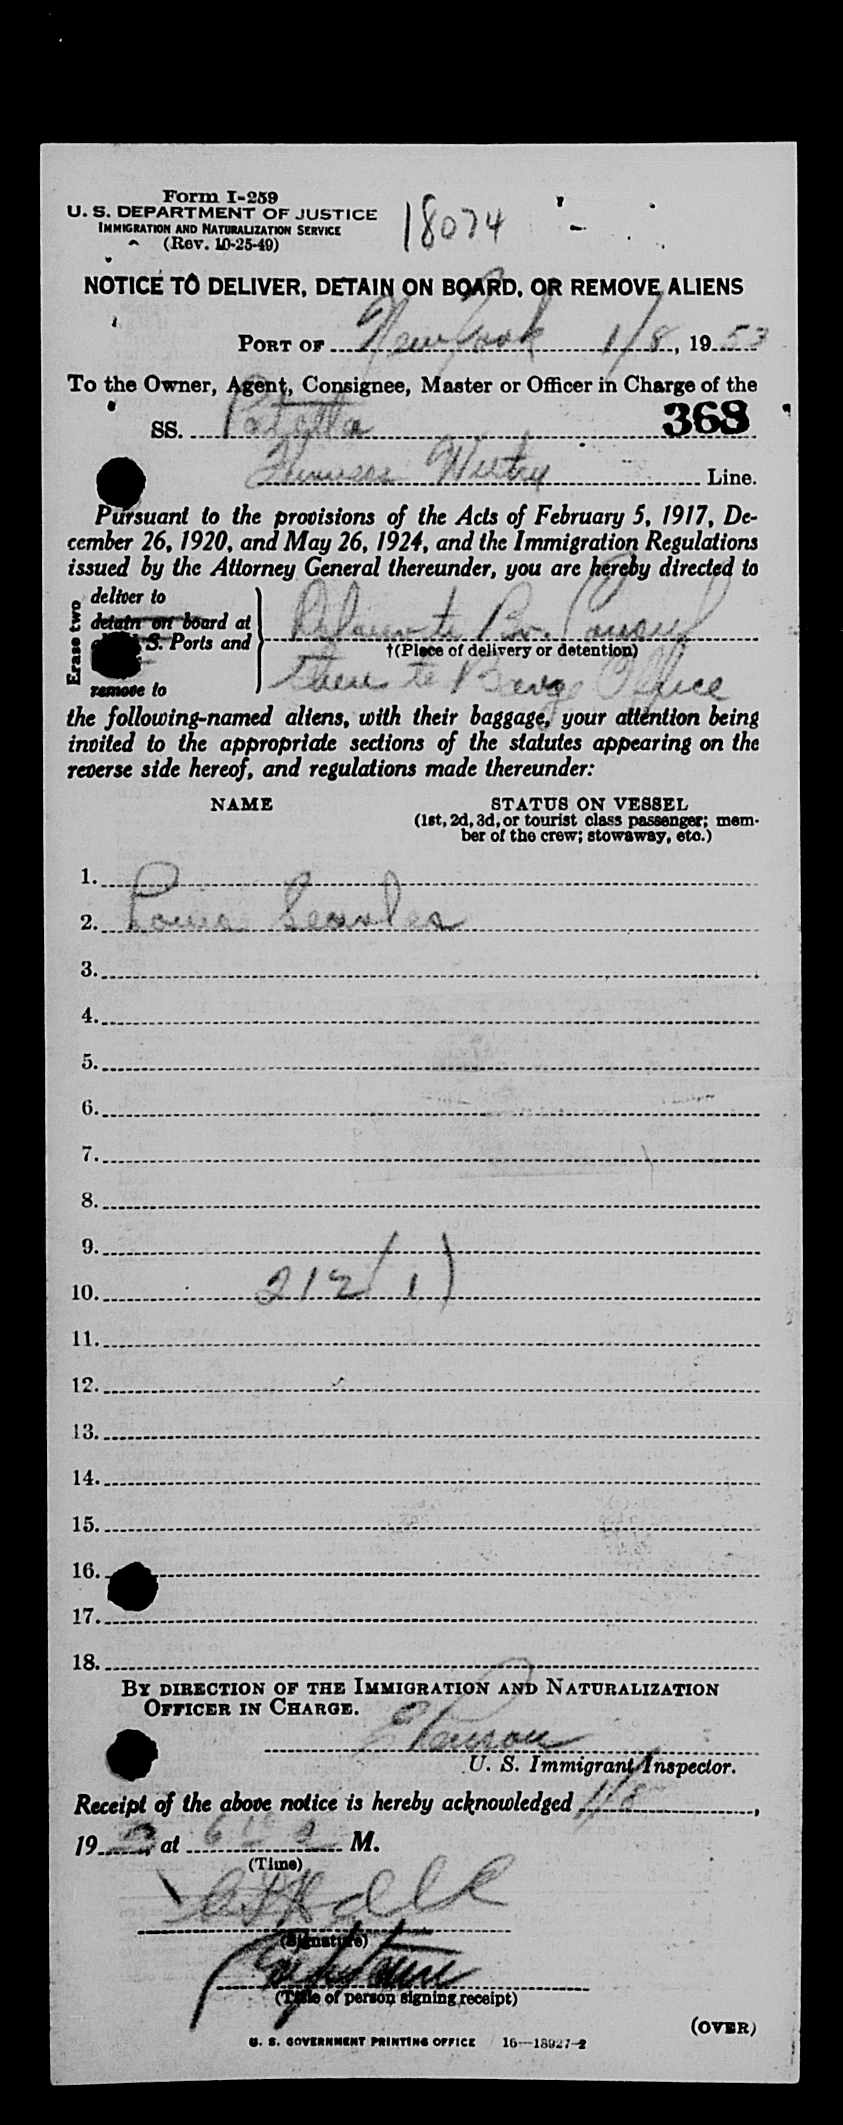 Form I-259
U. S. DEPARTMENT OF JUSTICE
IMMIGRATION AND NATURALIZATION SERVICE
(Rev. 10-25-49)
18074
NOTICE TO DELIVER, DETAIN ON BOARD, OR REMOVE ALIENS
PORT OF New York 1/8, 1953
To the Owner, Agent, Consignee, Master or Officer in Charge of the
SS. 368
Line.
Pursuant to the provisions of the Acts of February 5, 1917, De-
cember 26, 1920, and May 26, 1924, and the Immigration Regulations
issued by the Attorney General thereunder, you are hereby directed to
Erase two
deliver to
detain on board at
S. Ports and
remove to
to Br. Consul
†(Place of delivery or detention)
then to Barge Office
the following-named aliens, with their baggage, your attention being
invited to the appropriate sections of the statutes appearing on the
reverse side hereof, and regulations made thereunder:
NAME STATUS ON VESSEL
(1st, 2d, 3d, or tourist class passenger; mem-
ber of the crew; stowaway, etc.)
1.
2. Louis
3.
4.
5.
6.
7.
8.
9.
10. 212 (1)
11.
12.
13.
14.
15.
16.
17.
18.
BY DIRECTION OF THE IMMIGRATION AND NATURALIZATION
OFFICER IN CHARGE.
U. S. Immigrant Inspector.
Receipt of the above notice is hereby acknowledged 1/8,
19 , at M.
(Time)
(Signature)
(Title of person signing receipt)
(OVER)
U. S. GOVERNMENT PRINTING OFFICE 16—18927-2